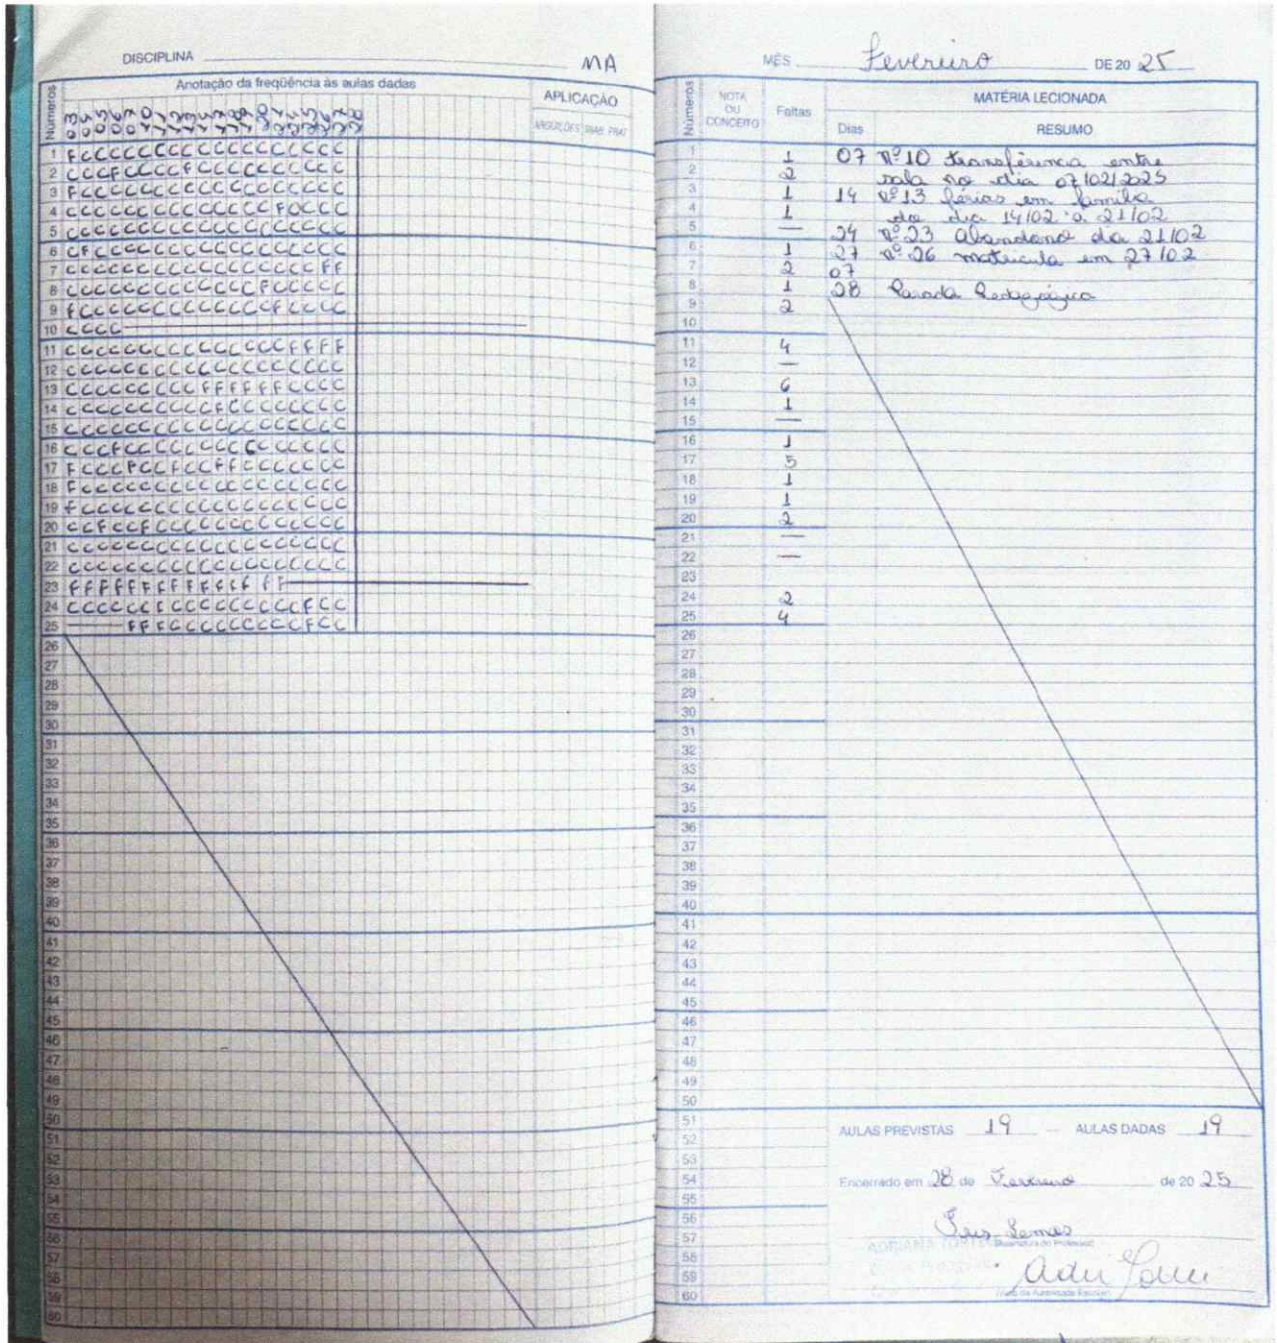 DISCIPLINA MA
Números
Anotação da freqüência às aulas dadas
APLICAÇÃO
ARGUIÇÕES TRAB. PRAT
03 04 05 06 07 10 11 12 13 14 17 18 19 20 21 24 25 26 27 28
1 F C C C C C C C C C C C C C C C C C C
2 C C C F C C C C F C C C C C C C C C C
3 F C C C C C C C C C C C C C C C C C C
4 C C C C C C C C C C C C C C F C C C C
5 C C C C C C C C C C C C C C C C C C C
6 C F C C C C C C C C C C C C C C C C C
7 C C C C C C C C C C C C C C C C C F F
8 C C C C C C C C C C C C C F C C C C C
9 F C C C C C C C C C C C C C F C C C C
10 C C C C
11 C C C C C C C C C C C C C C C F F F F
12 C C C C C C C C C C C C C C C C C C C
13 C C C C C C C C C F F F F F F C C C C
14 C C C C C C C C C C F C C C C C C C C
15 C C C C C C C C C C C C C C C C C C C
16 C C C F C C C C C C C C C C C C C C C
17 F C C C F C C F C C F F C C C C C C C
18 F C C C C C C C C C C C C C C C C C C
19 F C C C C C C C C C C C C C C C C C C
20 C C F C C F C C C C C C C C C C C C C
21 C C C C C C C C C C C C C C C C C C C
22 C C C C C C C C C C C C C C C C C C C
23 F F F F F F F F F F F F F F F
24 C C C C C C F C C C C C C C C C F C C
25 F F F C C C C C C C C C F C C
26
27
28
29
30
31
32
33
34
35
36
37
38
39
40
41
42
43
44
45
46
47
48
49
50
51
52
53
54
55
56
57
58
59
60
MÊS Fevereiro DE 20 25
Números
NOTA OU CONCEITO
Faltas
MATÉRIA LECIONADA
Dias RESUMO
1 1 07 Nº 10 transferência entre
2 2 sala no dia 07/02/2025
3 1 14 Nº 13 férias em família
4 1 do dia 14/02 a 21/02
5 — 24 Nº 23 abandono da 21/02
6 1 27 Nº 26 matricula em 27/02
7 2 07
8 1 28 Parada Pedagógica
9 2
10
11 4
12 —
13 6
14 1
15 —
16 1
17 5
18 1
19 1
20 2
21 —
22 —
23
24 2
25 4
26
27
28
29
30
31
32
33
34
35
36
37
38
39
40
41
42
43
44
45
46
47
48
49
50
51
52
53
54
55
56
57
58
59
60
AULAS PREVISTAS 19 — AULAS DADAS 19
Encerrado em 28 de Fevereiro de 20 25
Iris Lemos
ADRIANA
Assinatura do Professor
Visto da Autoridade Escolar